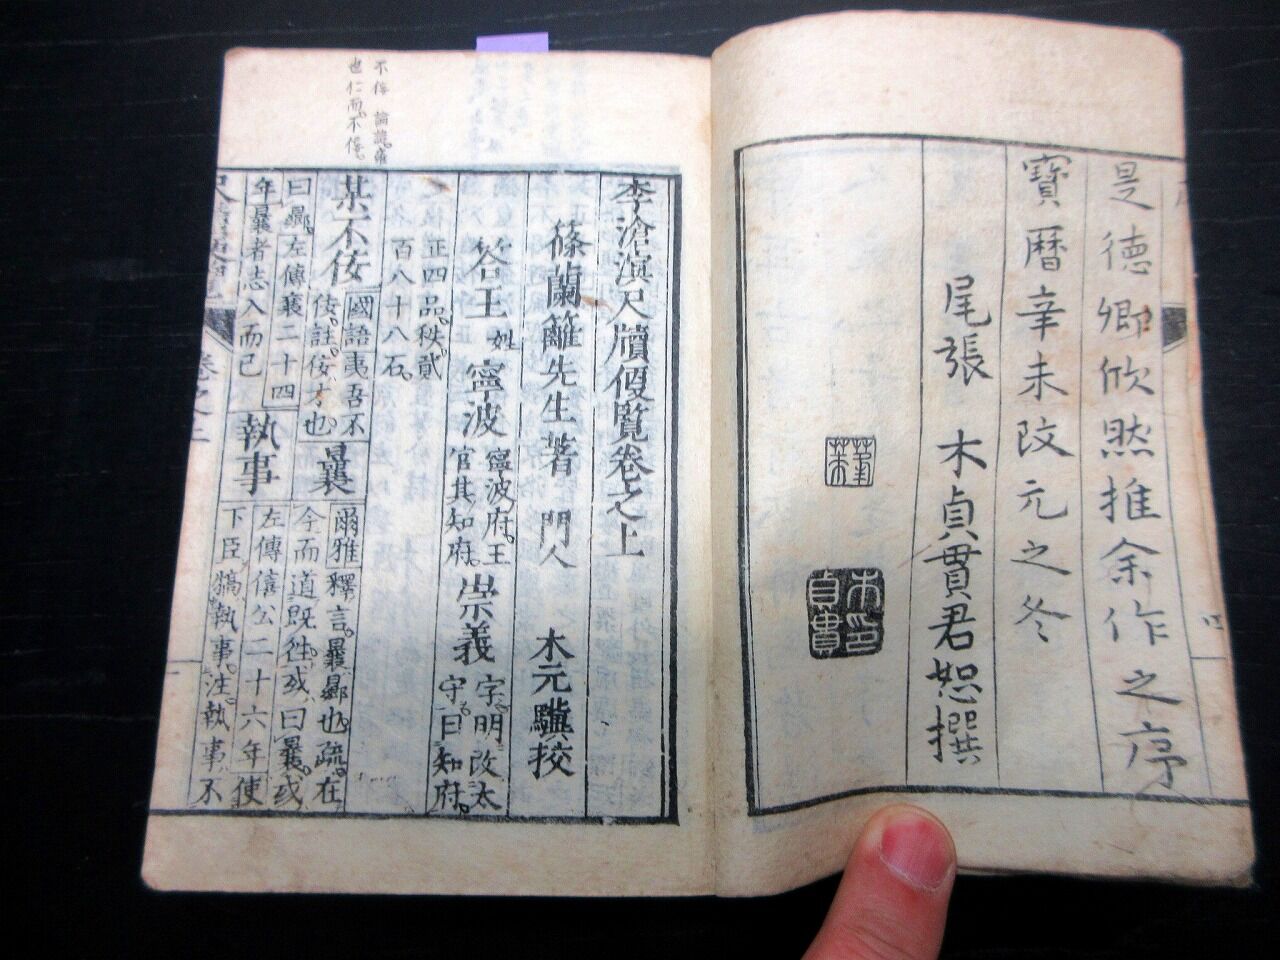 是德卿欣然推余作之序
寶曆辛未改元之冬
尾張 木貞貫君恕撰
木印貞貫
李滄溟尺牘便覧卷之上
篠蘭籬先生著 門人 木元驥挍
答王 姓 寧波 寧波府王官其知府 崇義 字明改太守曰知府
正四品秩貳百八十八石
某不佞 國語夷吾不佞註佞才也 曩 爾雅釋言曩曏也疏在今而道既徃或曰曩或
曰曏左傳襄二十四年曩者志入而已 執事 左傳僖公二十六年使下臣犒執事注執事不
卷之上
不佞 論
也仁而不佞